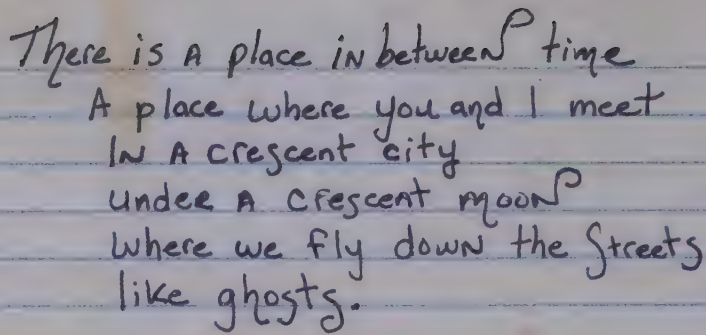 There is A place in between time
A place where you and I meet
In A crescent city
under A crescent moon
where we fly down the Streets
like ghosts.